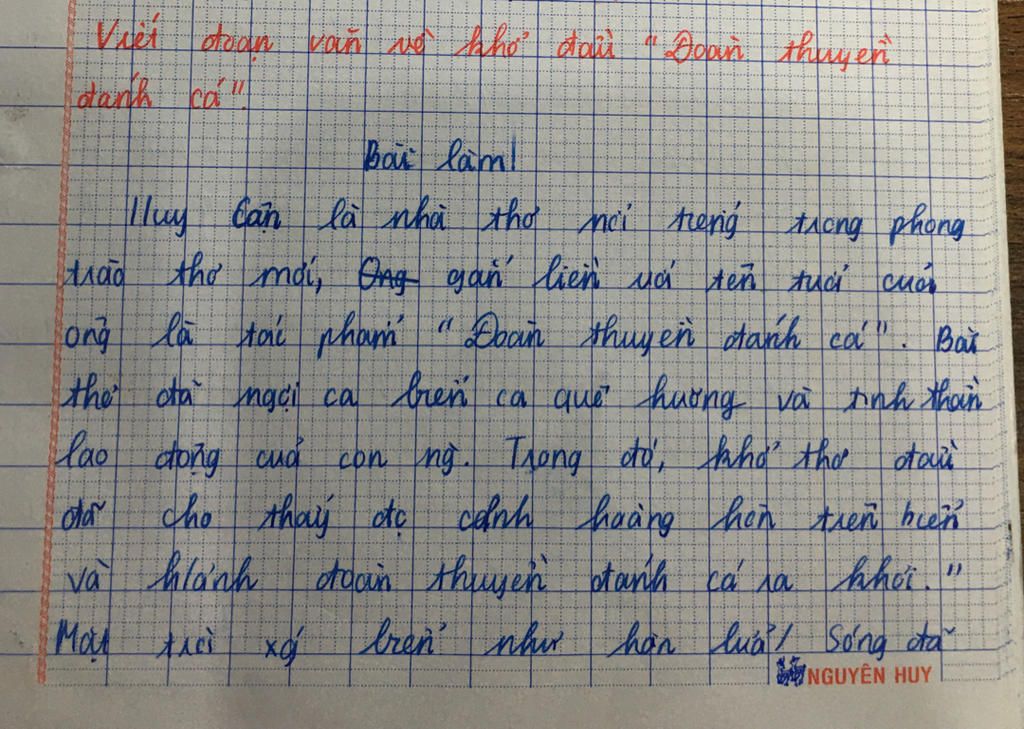 Viết đoạn văn về khổ đầu "Đoàn thuyền
đánh cá".
Bài làm
Huy Cận là nhà thơ nổi tiếng trong phong
trào thơ mới, Ông gắn liền với tên tuổi của
ông là tác phẩm "Đoàn thuyền đánh cá". Bài
thơ đã ngợi ca biển cả quê hương và tinh thần
lao động của con ng. Trong đó, khổ thơ đầu
đã cho thấy đc cảnh hoàng hôn trên biển
và h/ảnh đoàn thuyền đánh cá ra khơi. "
Mặt trời xg biển như hòn lửa/ Sóng đã
NGUYÊN HUY